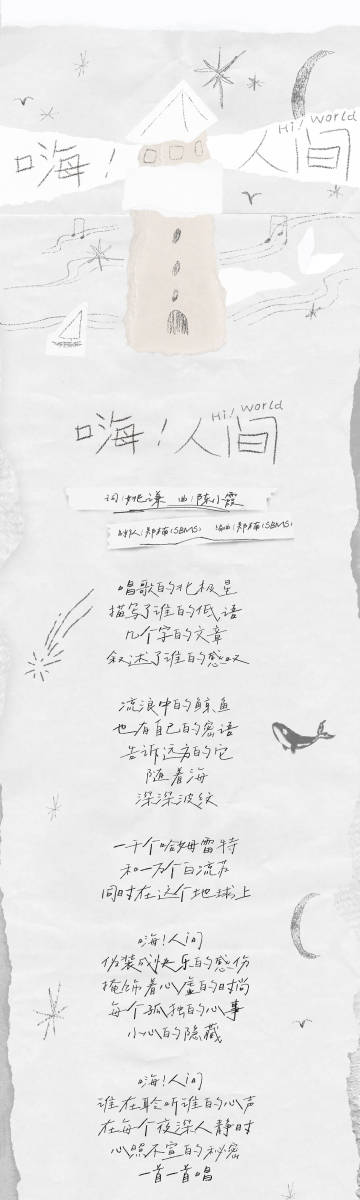 Hi! World
嗨！人间
Hi! World
嗨！人间
词/姚谦 曲/陈小霞
制作人/郑楠(SBMS) 编曲/郑楠(SBMS)
唱歌的北极星
描写了谁的低语
几个字的文章
叙述了谁的感叹
流浪中的鲸鱼
也有自己的密语
告诉远方的它
随着海
深深波纹
一千个哈姆雷特
和一万个白流苏
同时在这个地球上
嗨!人间
伪装成快乐的感伤
掩饰着心虚的时尚
每个孤独的心事
小心的隐藏
嗨!人间
谁在聆听谁的心声
在每个夜深人静时
心照不宣的秘密
一首一首唱